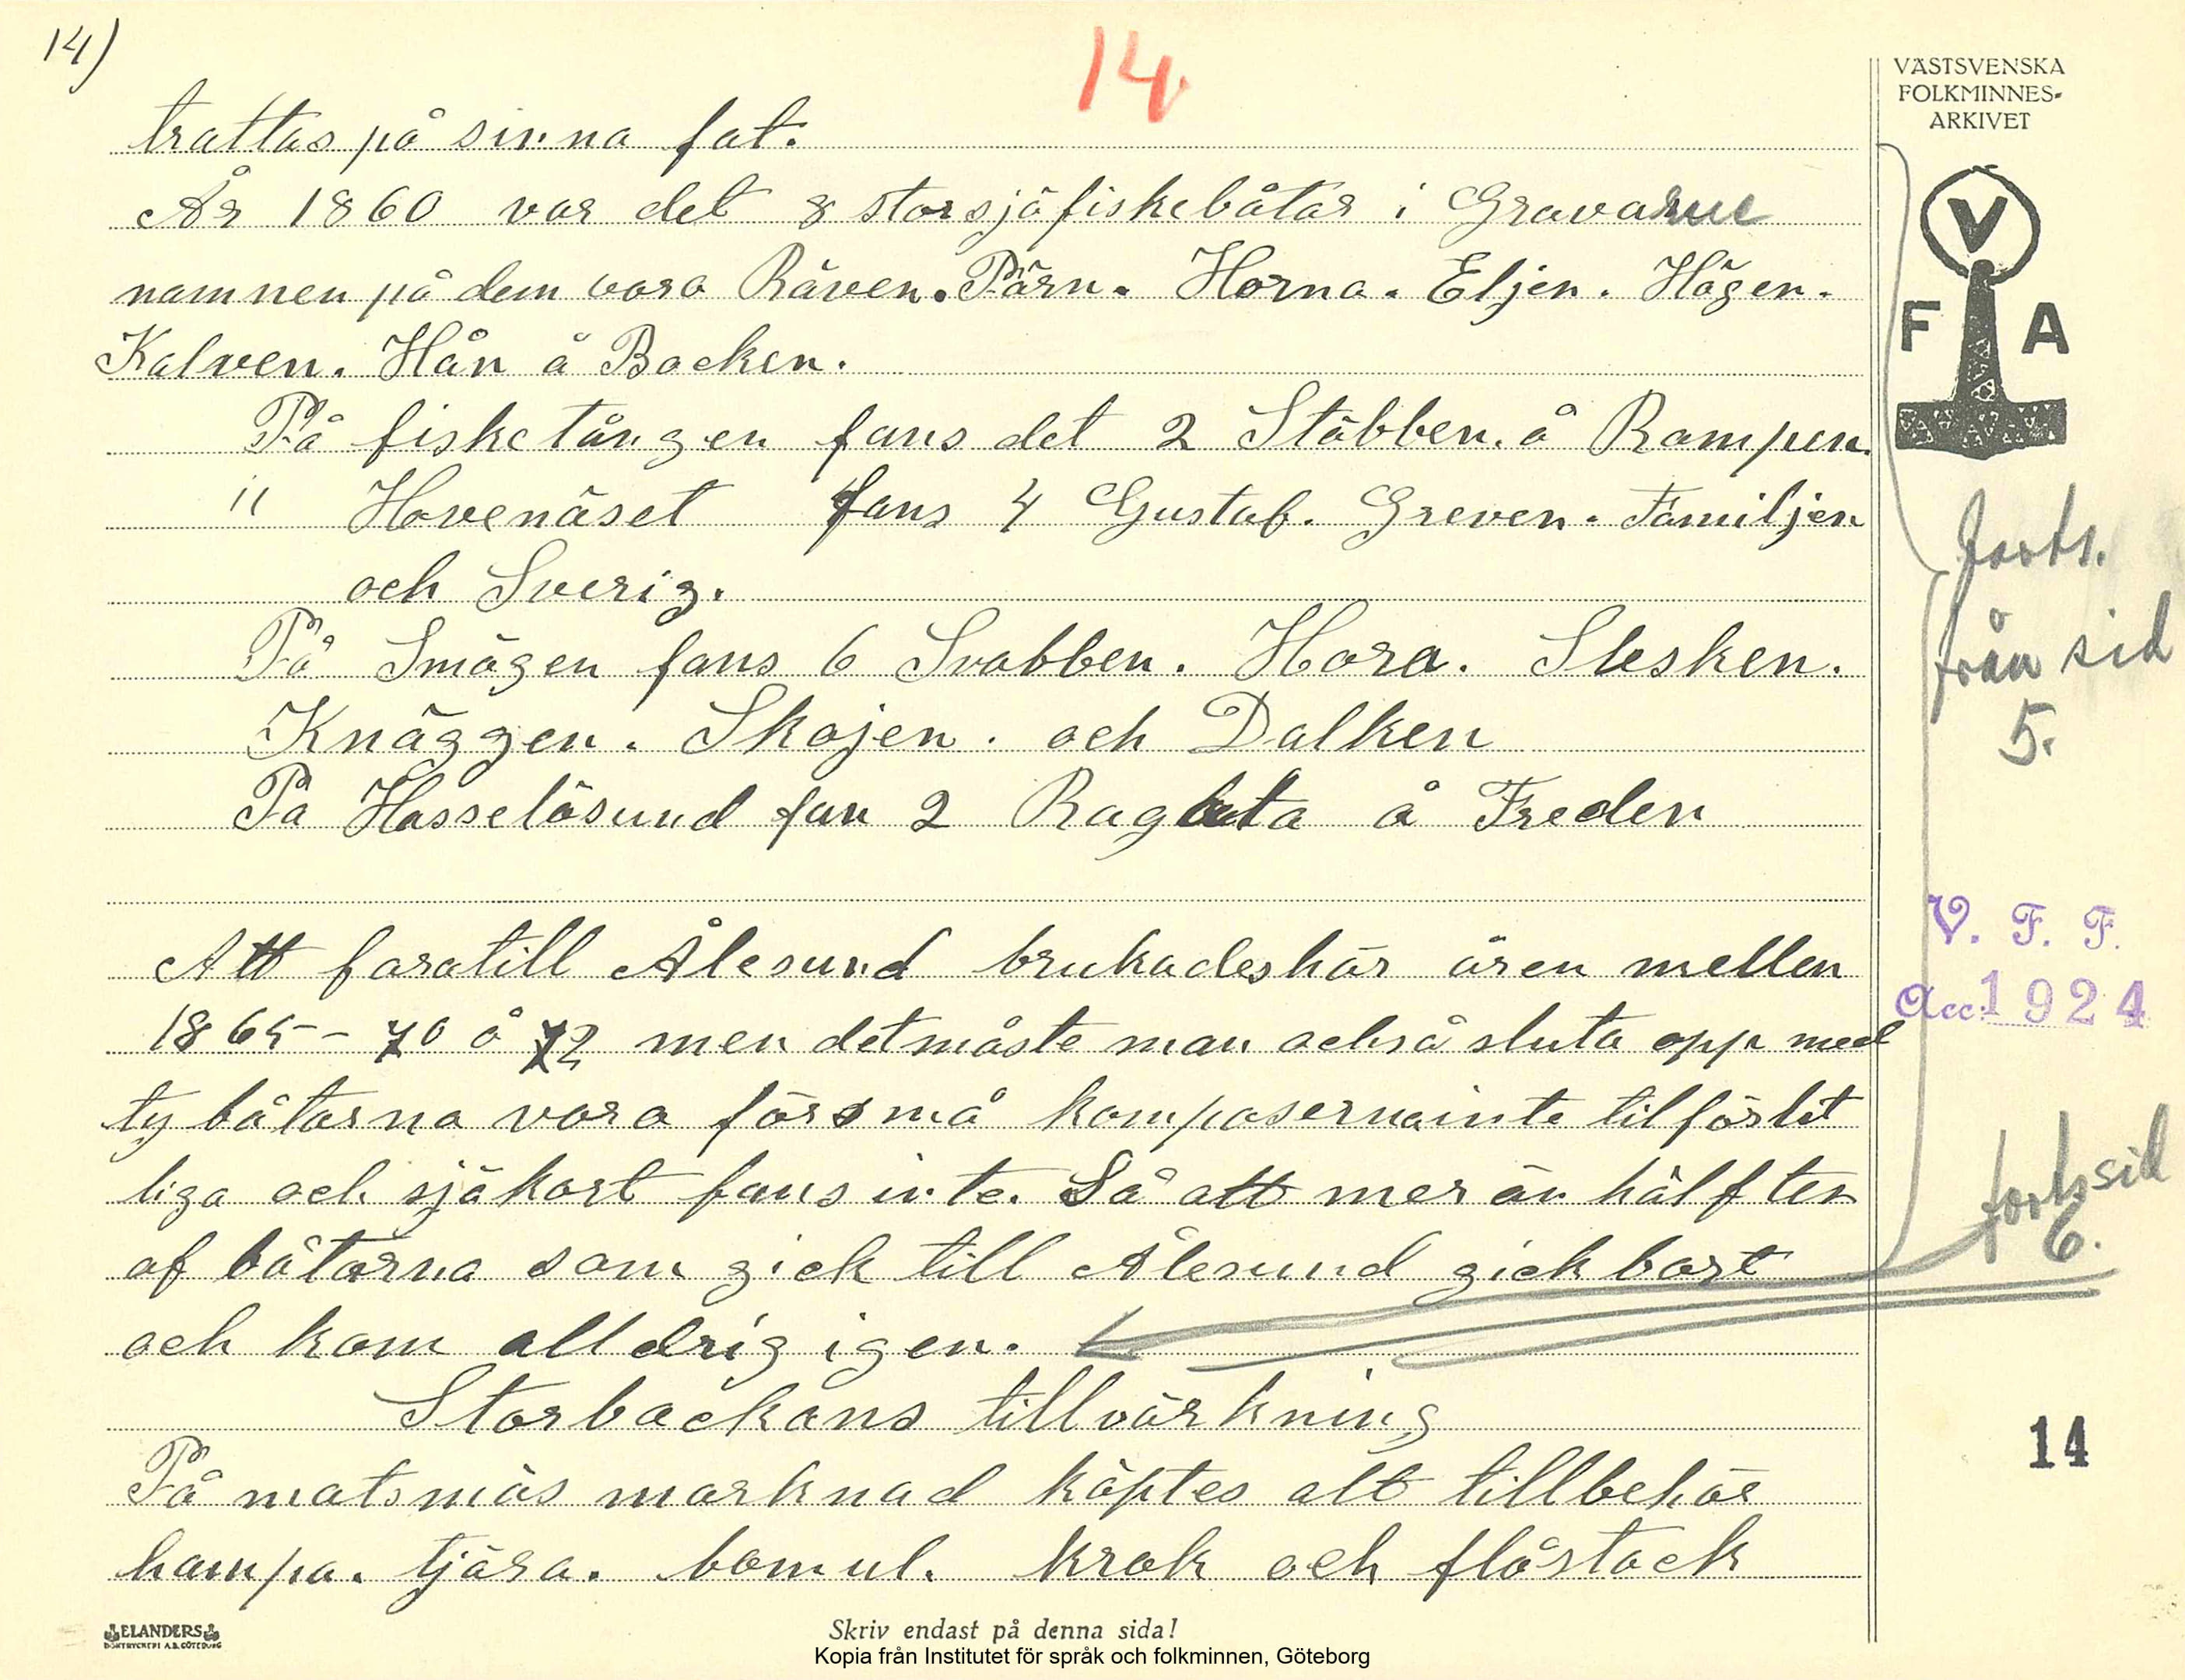 14)
14
VÄSTSVENSKA
FOLKMINNES-
ARKIVET
trattas på sinna fat.
År 1860 var det 8 storsjöfiskebåtar i Gravarne
namnen på dem vara Räven. Pärn. Horna. Eljen. Högen.
Kalven. Hån å Bocken.
V
F A
På fisketången fans det 2 Stöbben. å Rampen.
" Hovenäset fans 4 Gustaf. Greven. Familjen
och Sverig.
forts.
från sid
5.
På Smögen fans 6 Svabben. Hora. Slesken.
Knäggen. Skojen. och Dalken
På Hasselösund fan 2 Ragata å Freden
V. F. F.
Acc. 1924
Att faratill Ålesund brukadeshär åren mellen
1865-70 å 72 men detmåste man också sluta opp med
ty båtarna vara försmå kompasernainte tilförlit
liga och sjökort fans inte. Så att mer än hälften
af båtarna som gick till Ålesund gick bort
och kom alldrig igen.
forts sid
6.
Storbackans tillvärkning
14
På matsmäs marknad köptes alt tillbehör
hampa. tjära. bomul. krok och flåstock
ELANDERS
BOKTRYCKERI A.B. GÖTEBORG
Skriv endast på denna sida!
Kopia från Institutet för språk och folkminnen, Göteborg